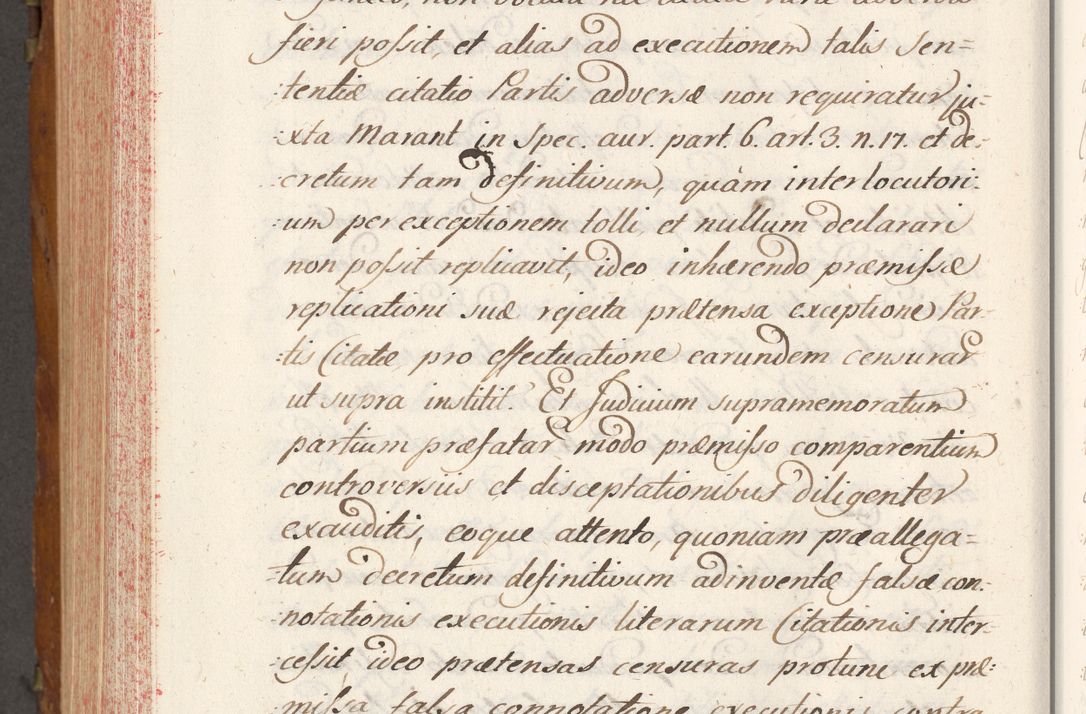 fieri possit, et alias ad executionem talis Sen=
tentiæ citatio Partis adversæ non requiratur ju:
:xta Marant in Spec. aur. part. 6. art. 3. n. 17. et de:
:cretum tam definitivum, quàm interlocutori:
:um per exceptionem tolli, et nullum declarari
non possit replicavit, ideo inhærendo præmissæ
replicationi suæ rejecta prætensa exceptione Par:
:tis Citatæ pro effectuatione earundem censurar
ut supra institit. Et Judicium supramemoratum
partium præfatar modo præmisso comparentium
controversiis et disceptationibus diligenter
exauditis, eoque attento, quoniam præallega=
tum decretum definitivum adinventæ falsæ con:
:notationis executionis literarum Citationis inter:
:cessit ideo prætensas censuras protunc ex præ:
:missa falsa connotatione executionis contra